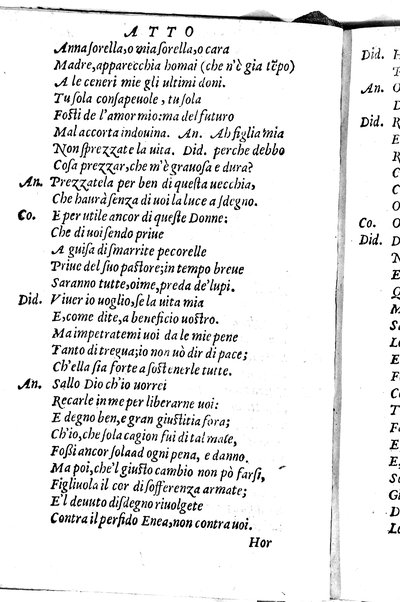 ATTO
Anna sorella, o mia sorella, o cara
Madre, apparecchia homai (che n'è gia tẽpo)
A le ceneri mie gli ultimi doni.
Tu sola consapeuole, tu sola
Fosti de l'amor mio: ma del futuro
Mal accorta indouina. An. Ah figlia mia
Non sprezzate la uita. Did. perche debbo
Cosa prezzar, che m'è grauosa e dura?
An. Prezzatela per ben di questa uecchia,
Che haurà senza di uoi la luce a sdegno.
Co. E per utile ancor di queste Donne;
Che di uoi sendo priue
A guisa di smarrite pecorelle
Priue del suo pastore; in tempo breue
Saranno tutte, oime, preda de' lupi.
Did. Viuer io uoglio, se la uita mia
E, come dite, a beneficio uostro.
Ma impetratemi uoi da le mie pene
Tanto di tregua; io non uò dir di pace;
Ch'ella sia forte a sostenerle tutte.
An. Sallo Dio ch'io uorrei
Recarle in me per liberarne uoi:
E degno ben, e gran giustitia fora;
Ch'io, che sola cagion fui di tal male,
Fossi ancor sola ad ogni pena, e danno.
Ma poi, che'l giusto cambio non pò farsi,
Figliuola il cor di sofferenza armate;
E'l deuuto disdegno riuolgete
Contra il perfido Enea, non contra uoi.
Hor
Did.
An.
Did.
Co.
Did.